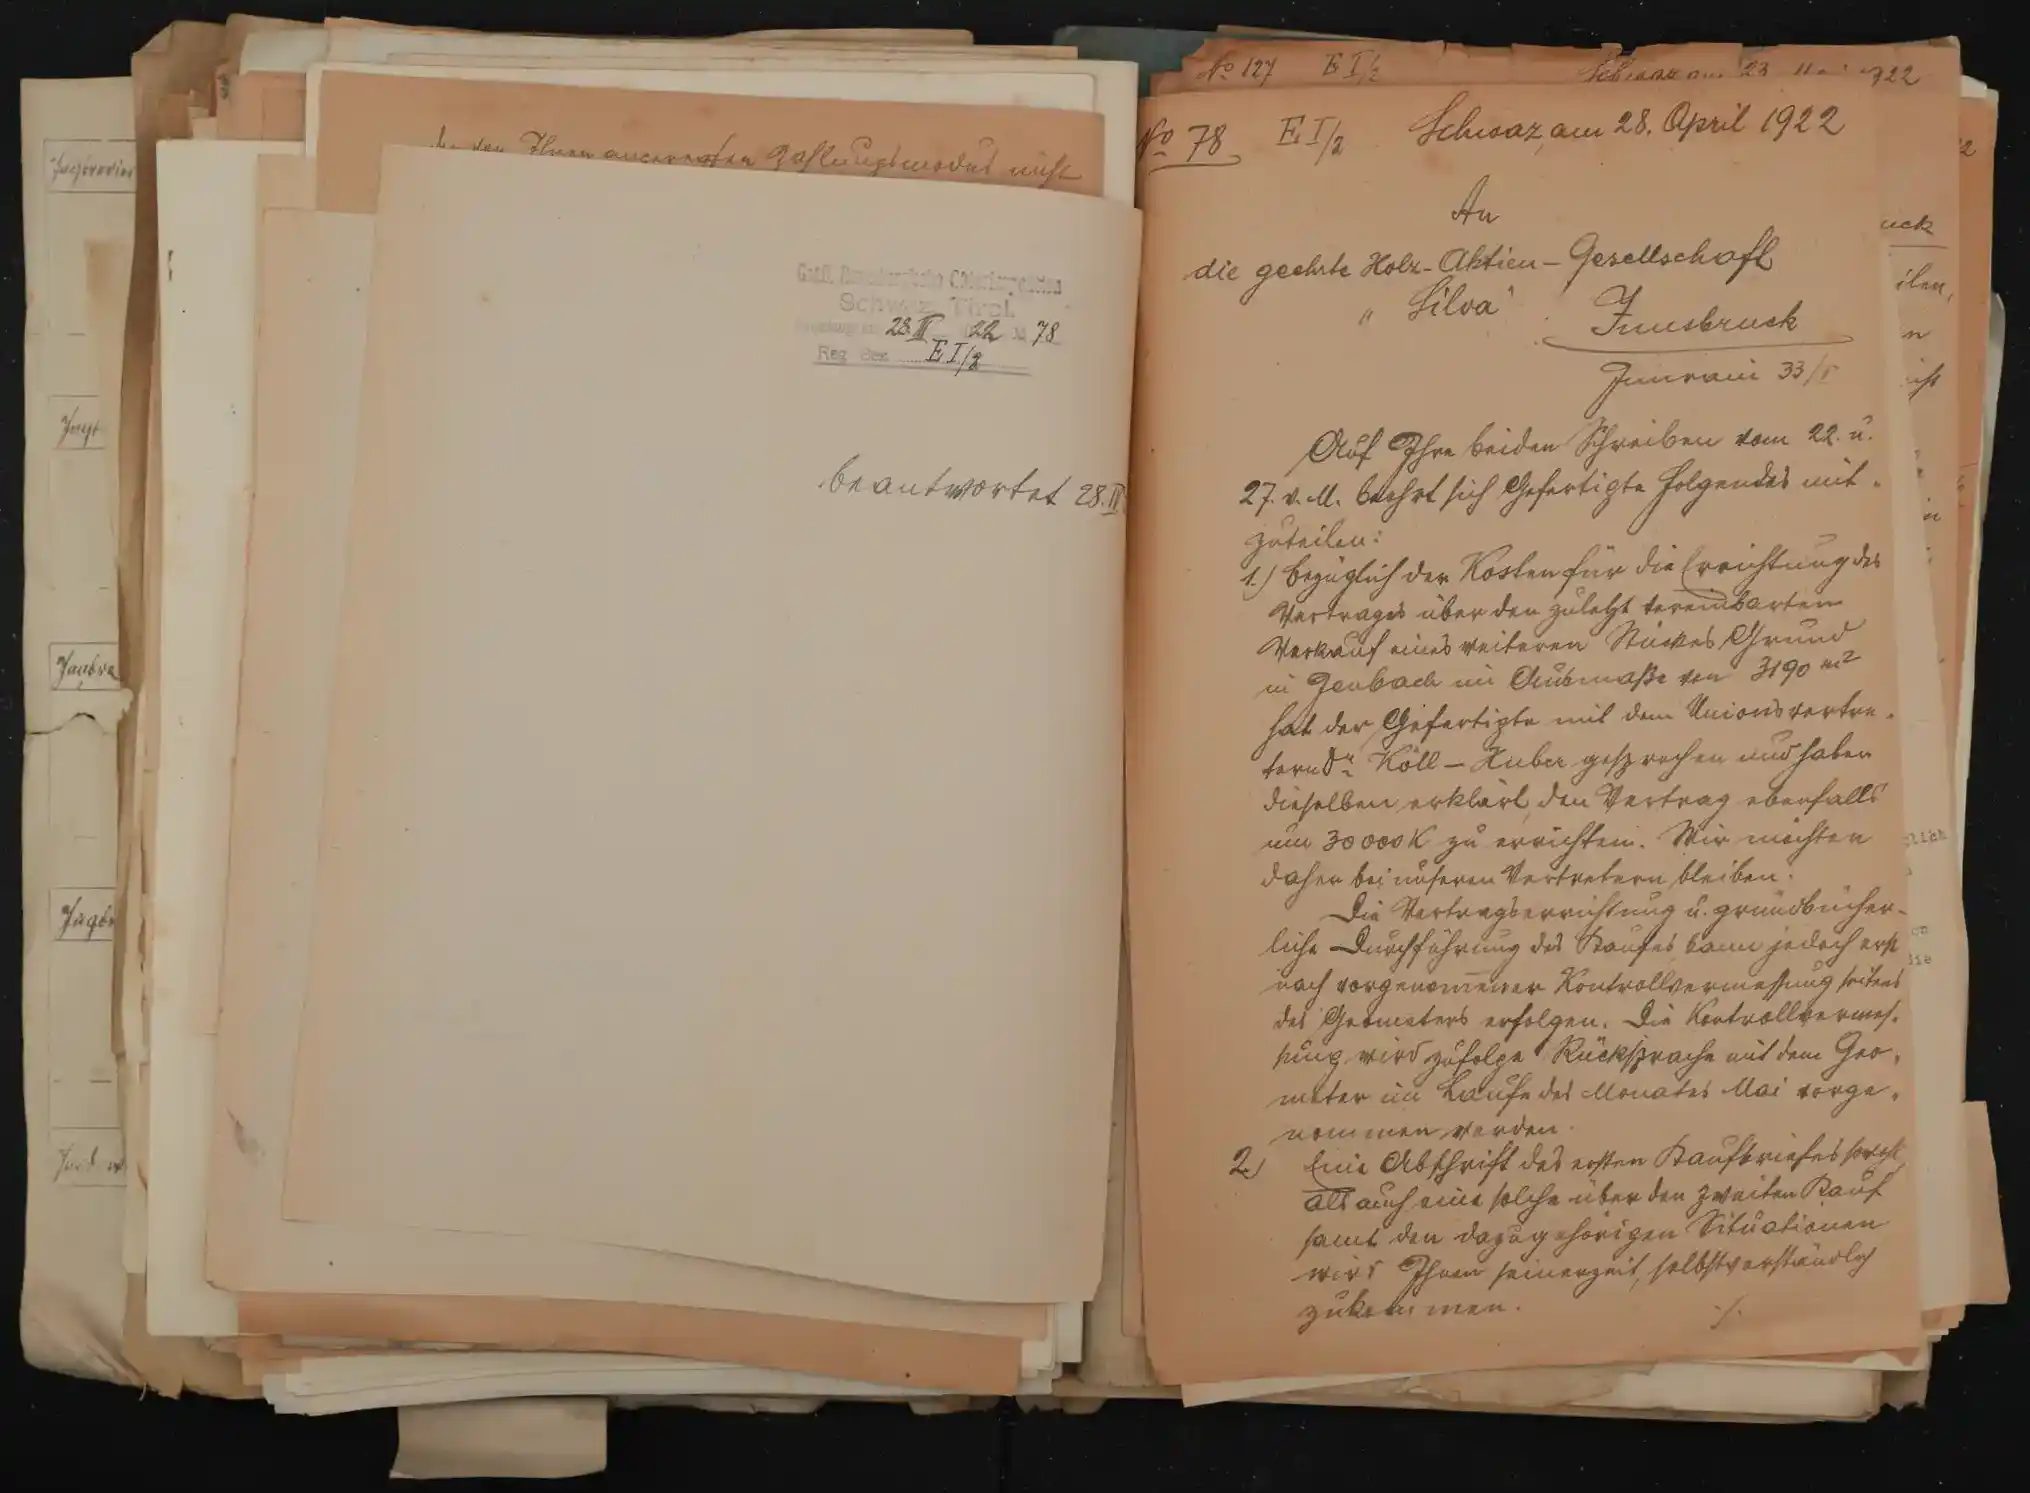 Jagdrevier
Jagd
Jagdbe
Ihnen Zahlungsmodus nicht
Schwaz, Tirol
28. IV 22 № 78
Reg. Sex. E I/2
beantwortet 28. IV
№ 127 E I/2 Schwaz am 23. Mai 1922
№ 78 E I/2 Schwaz, am 28. April 1922
An
die geehrte Holz-Aktien-Gesellschaft
„Silva"
Innsbruck
Innrain 33/I
Auf Ihre beiden Schreiben vom 22. u.
27. v. M. beehrt sich Gefertigte Folgendes mit-
zuteilen:
1.) Bezüglich der Kosten für die Errichtung des
Vertrages über den zuletzt vereinbarten
Verkauf eines weiteren Stückes Grund
in Jenbach im Ausmaße von 3190 m²
hat der Gefertigte mit dem Unionsvertre-
tern Dr. Köll-Huber gesprochen und haben
dieselben erklärt, den Vertrag ebenfalls
um 30000 K zu errichten. Wir möchten
daher bei unseren Vertretern bleiben.
Die Vertragserrichtung u. grundbücher-
liche Durchführung des Kaufes kann jedoch erst
nach vorgenommener Kontrollvermessung seitens
des Geometers erfolgen. Die Kontrollvermes-
sung wird zufolge Rücksprache mit dem Geo-
meter im Laufe des Monates Mai vorge-
nommen werden.
2.) Eine Abschrift des ersten Kaufbriefes sowohl
als auch eine solche über den zweiten Kauf
samt den dazugehörigen Situationen
wird Ihnen seinerzeit, selbstverständlich
zukommen.
./.